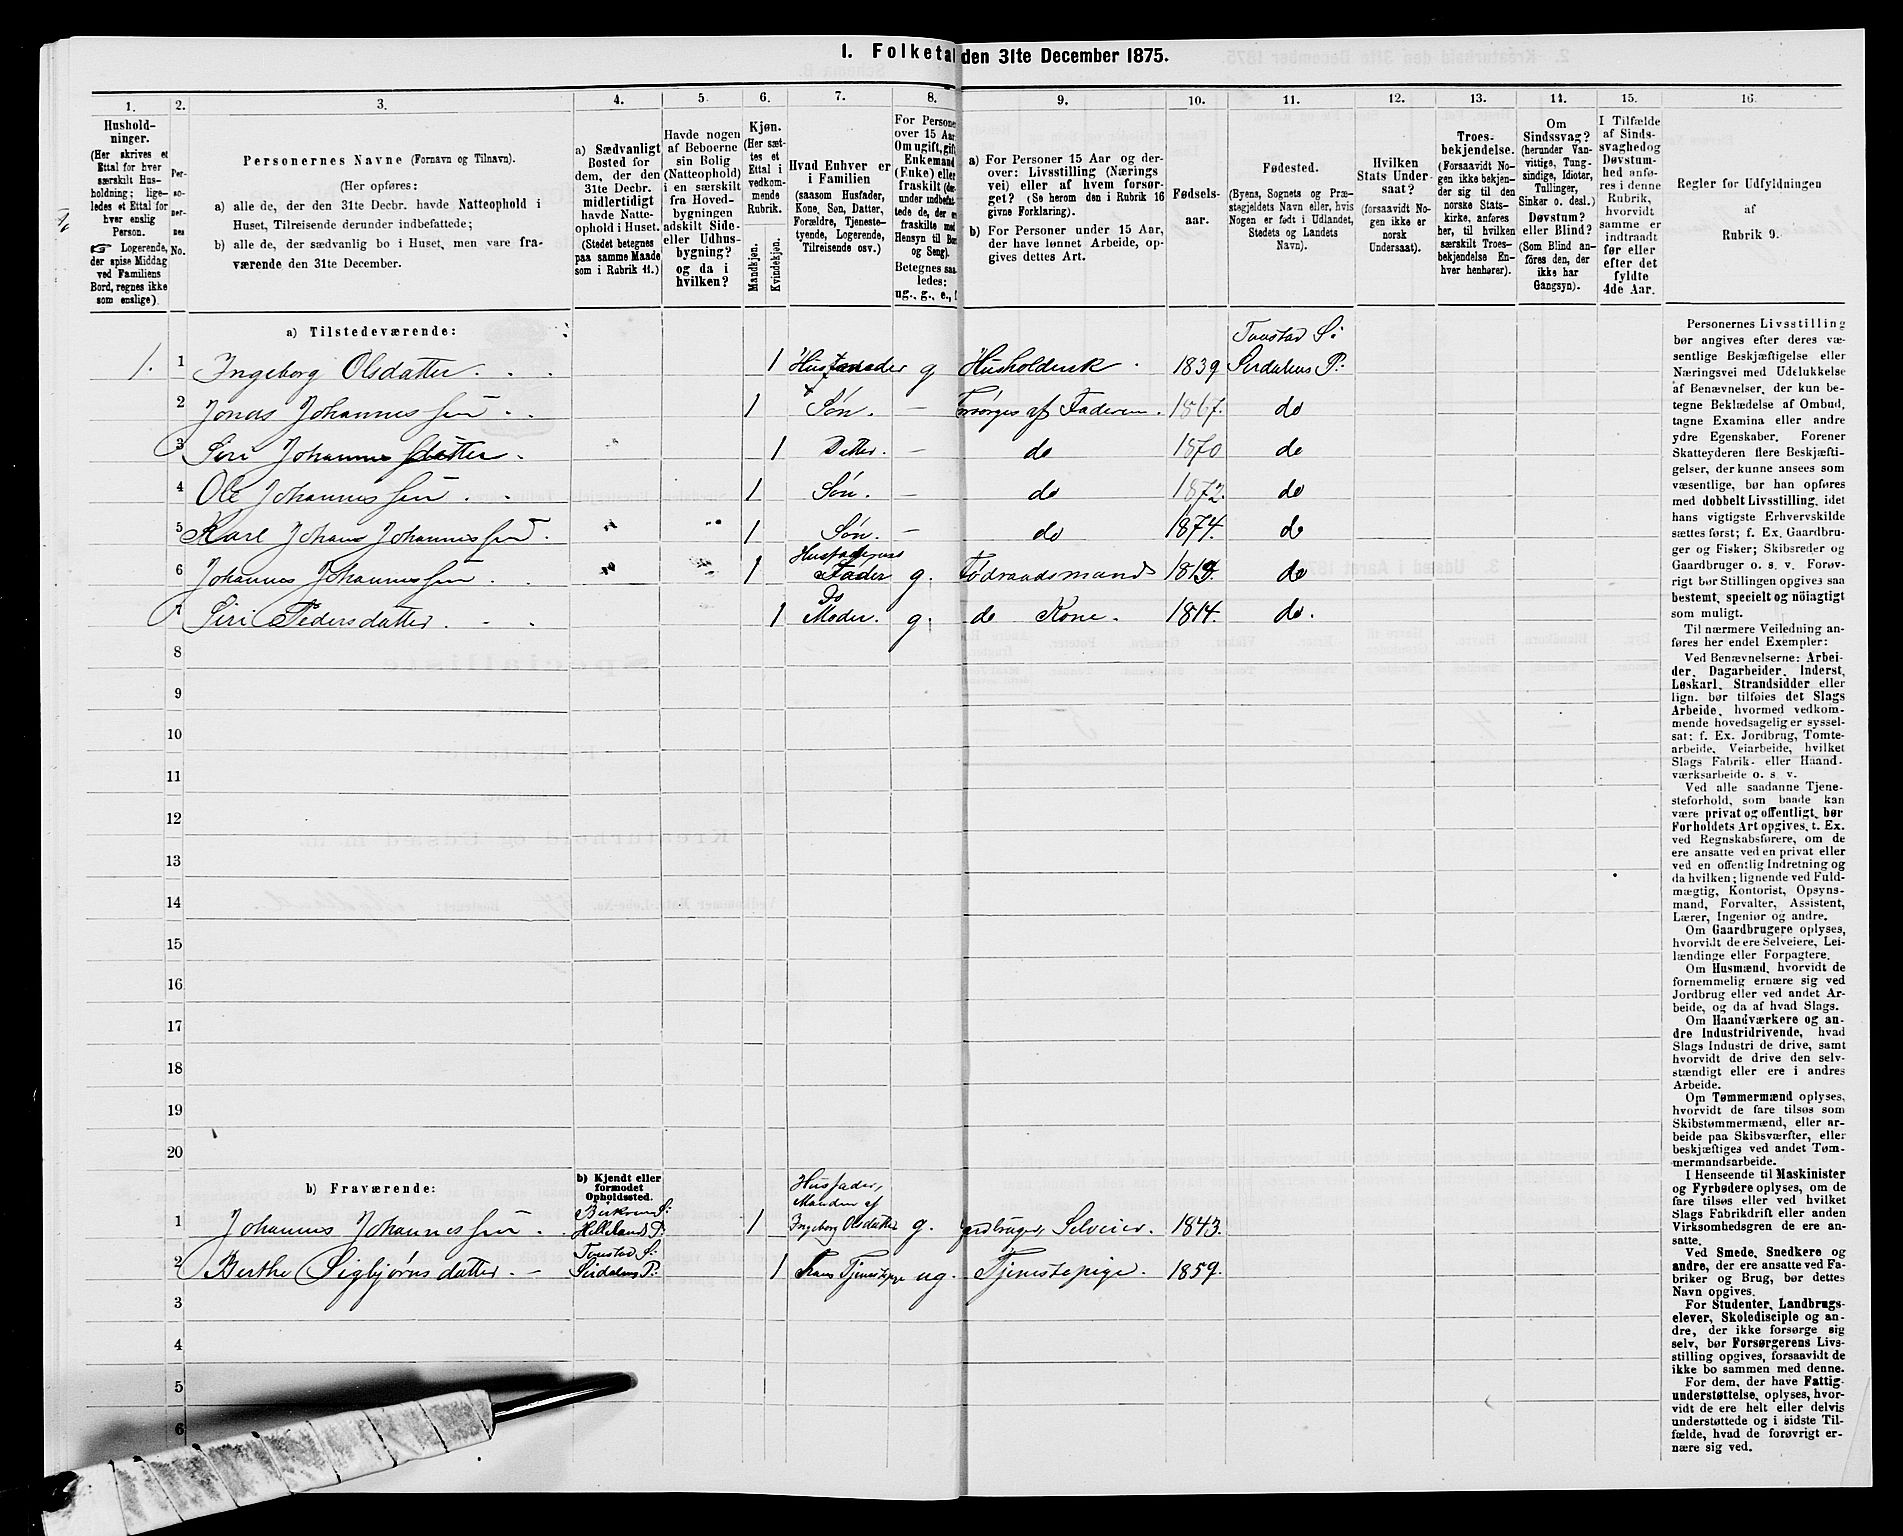 1. Folketal den 31te December 1875.
1. 2. 3. 4. 5. 6. 7. 8. 9. 10. 11. 12. 13. 14. 15. 16.
Hushold-
ninger.
(Her skrives et
Ettal for hver
særskilt Hus-
holdning; lige-
ledes et Ettal for
hver enslig
Person.
Logerende,
der spise Middag
ved Familiens
Bord, regnes ikke
som enslige).
Per-
so-
ner-
nes
No.
Personernes Navne (Fornavn og Tilnavn).
(Her opføres:
a) alle de, der den 31te Decbr. havde Natteophold i
Huset, Tilreisende derunder indbefattede;
b) alle de, der sædvanlig bo i Huset, men vare fra-
værende den 31te December.
a) Sædvanligt
Bosted for
dem, der den
31te Decbr.
midlertidigt
havde Natte-
ophold i Huset.
(Stedet betegnes
paa samme Maade
som i Rubrik 11.)
Havde nogen
af Beboerne
sin Bolig
(Natteophold)
i en særskilt
fra Hoved-
bygningen
adskilt Side-
eller Udhus-
bygning?
og da i
hvilken?
Kjøn.
(Her sæt-
tes et
Ettal i
vedkom-
mende
Rubrik.
Mandkjøn.
Kvindekjøn.
Hvad Enhver er
i Familien
(saasom Husfader,
Kone, Søn, Datter,
Forældre, Tjeneste-
tyende, Logerende,
Tilreisende osv.)
For Persone
over 15 Aar
Om ugift, gift
Enkemand
(Enke) eller
fraskilt (der-
under indbefat-
tede de, der e
fraskilte med
Hensyn til Bo
og Seng).
Betegnes saa-
ledes:
ug., g., e.,
a) For Personer 15 Aar og der-
over: Livsstilling (Nærings
vei) eller af hvem forsør-
get? (Se herom den i Rubrik 16
givne Forklaring).
b) For Personer under 15 Aar,
der have lønnet Arbeide, op-
gives dettes Art.
Fødsels-
aar.
Fødested.
(Byens, Sognets og Præ-
stegjeldets Navn eller, hvis
Nogen er født i Udlandet,
Stedets og Landets
Navn).
Hvilken
Stats Under-
saat?
(forsaavidt No-
gen ikke er
norsk
Undersaat).
Troes-
bekjendelse.
(Forsaavidt No-
gen ikke bekjen-
der sig til den
norske Stats-
kirke, anføres
her, til hvilken
særskilt Troes-
bekjendelse En-
hver henhører).
Om
Sindssvag?
(herunder Van-
vittige, Tung-
sindige, Idioter,
Tullinger,
Sinker o. desl.)
Døvstum?
eller Blind?
(Som Blind an-
føres den, der
ikke har
Gangsyn).
I Tilfælde
af Sinds-
svaghed og
Døvstum-
hed anfø-
res i denne
Rubrik,
hvorvidt
samme er
indtraadt
før eller
efter det
fyldte
4de Aar.
Regler for Udfyldningen
af
Rubrik 9.
a) Tilstedeværende:
Tonstad S:
1. 1 Ingeborg Olsdatter 1 g Husholdersk 1839 Sirdalens P:
2 Jonas Johannessen 1 Søn. – Forsørges af Faderen. 1867. do
3 Siri Johannesdatter. 1 Datter. – do 1870 do
4 Ole Johannessen 1 Søn. – do 1872. do
5 Karl Johan Johannessen. 1 Søn. – do 1874. do
6 Johannes Johannessen 1 Husfaderens Fader g. Fødraadsmand do
7 Siri Pedersdatter 1 Do Moder. g. de Kone. 1814. do.
8
9
10
11
12
13
14
15
16
17
18
19
20
b) Fraværende:
b) Kjendt eller
formodet
Opholdssted.
1 Johannes Johannessen Helleland P: 1 Husfader, Manden af Ingeborg Olsdatter g. Selveier. 1843.
2 Berthe Sigbjørnsdatter Tonstad S: Sirdalens P: 1 Tjenestepige ug. Tjenestepige. 1859.
3
4
5
6
Personernes Livsstilling
bør angives efter deres væ-
sentlige Beskjæftigelse eller
Næringsvei med Udelukkelse
af Benævnelser, der kun be-
tegne Beklædelse af Ombud,
tagne Examina eller andre
ydre Egenskaber. Forener
Skatteyderen flere Beskjæfti-
gelser, der kunne ansees som
væsentlige, bør han opføres
med dobbelt Livsstilling, idet
hans vigtigste Erhvervskilde
sættes først; f. Ex. Gaardbru-
ger og Fisker; Skibsreder og
Gaardbruger o. s. v. Forøv-
rigt bør Stillingen opgives saa
bestemt, specielt og nöiagtigt
som muligt.
Til nærmere Veiledning an-
føres her endel Exempler:
Ved Benævnelserne: Arbei-
der, Dagarbeider, Inderst,
Løskarl, Strandsidder eller
lign. bør tilføies det Slags
Arbeide, hvormed vedkom-
mende hovedsagelig er syssel-
sat; f. Ex. Jordbrug, Tomte-
arbeide, Veiarbeide, hvilket
Slags Fabrik- eller Haand-
værksarbeide o. s. v.
Ved alle saadanne Tjene-
steforhold, som baade kan
være privat og offentligt, bør
Forholdets Art opgives, t. Ex.
ved Regnskabsførere, om de
ere ansatte ved en privat eller
ved en offentlig Indretning og
da hvilken; lignende ved Fuld-
mægtig, Kontorist, Opsyns-
mand, Forvalter, Assistent,
Lærer, Ingeniør og andre.
Om Gaardbrugere oplyses,
hvorvidt de ere Selveiere, Lei-
lændinge eller Forpagtere.
Om Husmænd, hvorvidt de
fornemmelig ernære sig ved
Jordbrug eller ved andet Ar-
beide, og da af hvad Slags.
Om Haandværkere og an-
dre Industridrivende, hvad
Slags Industri de drive, samt
hvorvidt de drive den selv-
stændigt eller ere i andres
Arbeide.
Om Tømmermænd oplyses,
hvorvidt de fare tilsøs som
Skibstømmermænd, eller ar-
beide paa Skibsværfter, eller
beskjæftiges ved andet Tøm-
mermandsarbeide.
I Henseende til Maskinister
og Fyrbødere oplyses, om de
fare tilsøs eller ved hvilket
Slags Fabrikdrift eller anden
Virksomhedsgren de ere an-
satte.
Ved Smede, Snedkere og
andre, der ere ansatte ved Fa-
briker og Brug, bør dettes
Navn opgives.
For Studenter, Landbrugs-
elever, Skoledisciple og an-
dre, der ikke forsørge sig
selv, bør Forsørgerens Livs-
stilling opgives, forsaavidt de
ikke bo sammen med denne.
For dem, der have Fattig-
understøttelse, oplyses, hvor-
vidt de ere helt eller delvis
understøttede og i sidste Til-
fælde, hvad de forøvrigt er-
nære sig ved.